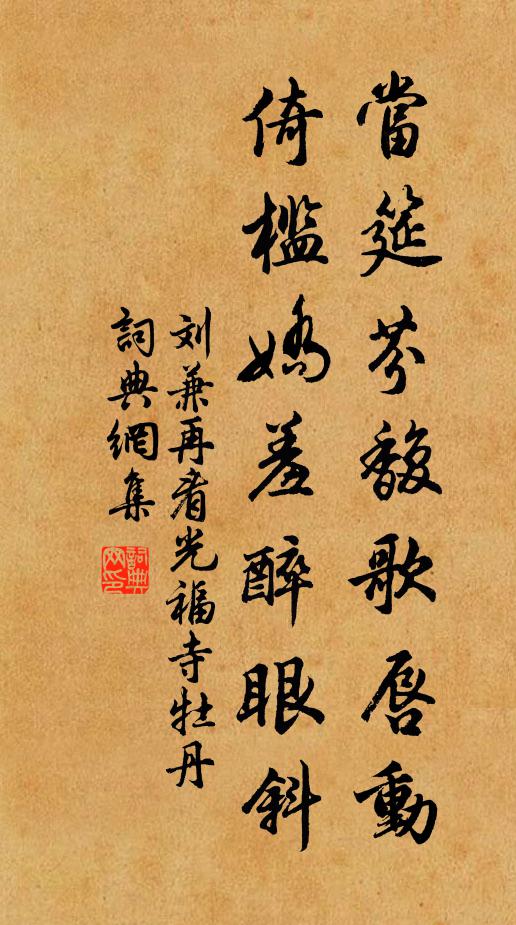 當筵芬馥歌唇動
倚檻嬌羞醉眼斜
刘兼再看光福寺牡丹
詞典網集
詞典網印